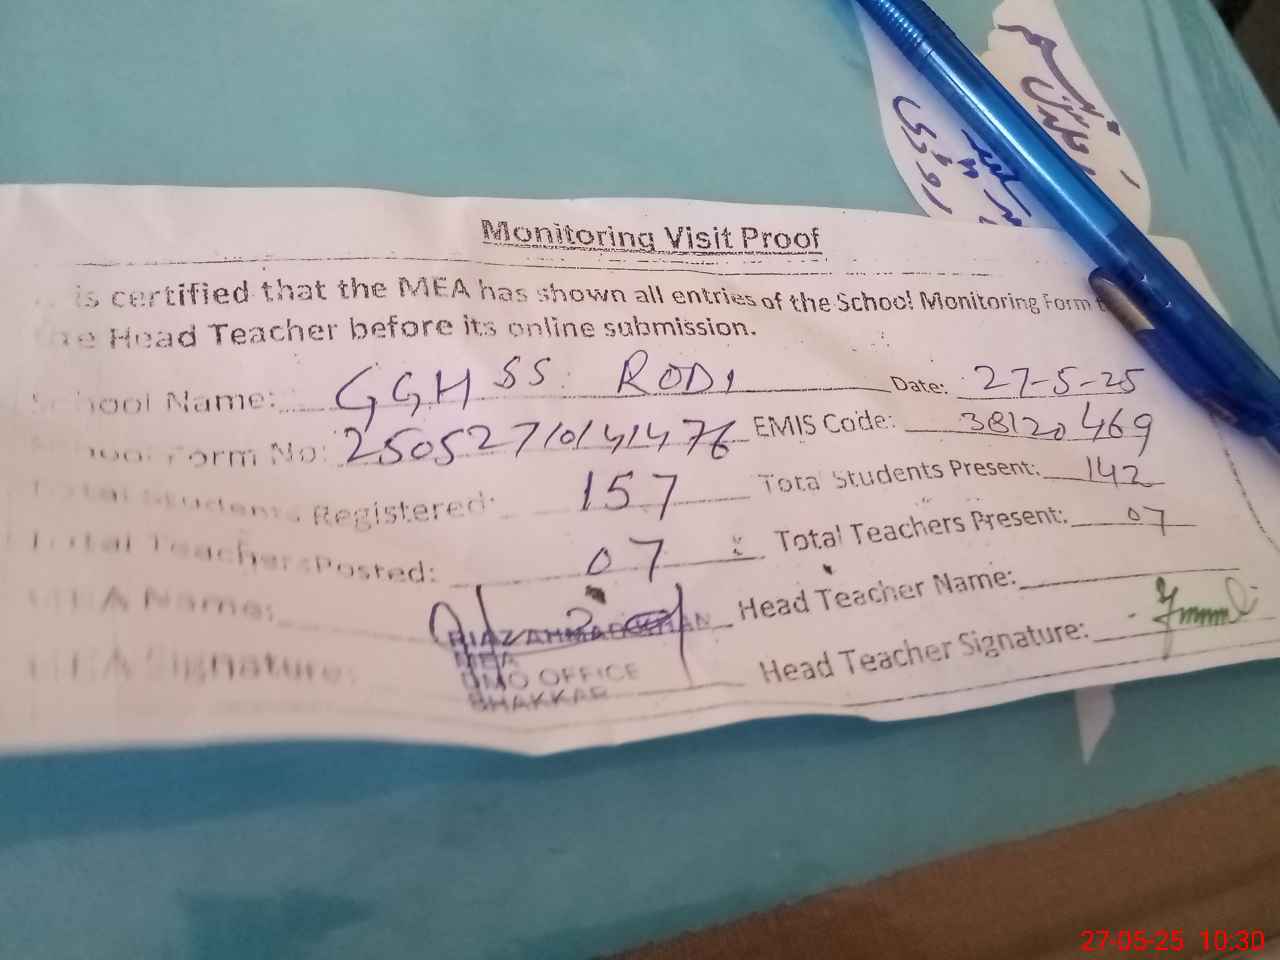 Monitoring Visit Proof
is certified that the MEA has shown all entries of the School Monitoring Form
the Head Teacher before its online submission.
School Name: GGHSS RODI Date: 27-5-25
School Form No: 25052710141476 EMIS Code: 38120469
Total Students Registered: 157 Total Students Present: 142
Total Teachers Posted: 07 Total Teachers Present: 07
MEA Name: Head Teacher Name:
RIAZ AHMAD KHAN
MEA
DMO OFFICE
BHAKKAR
MEA Signature: Head Teacher Signature:
27-05-25 10:30